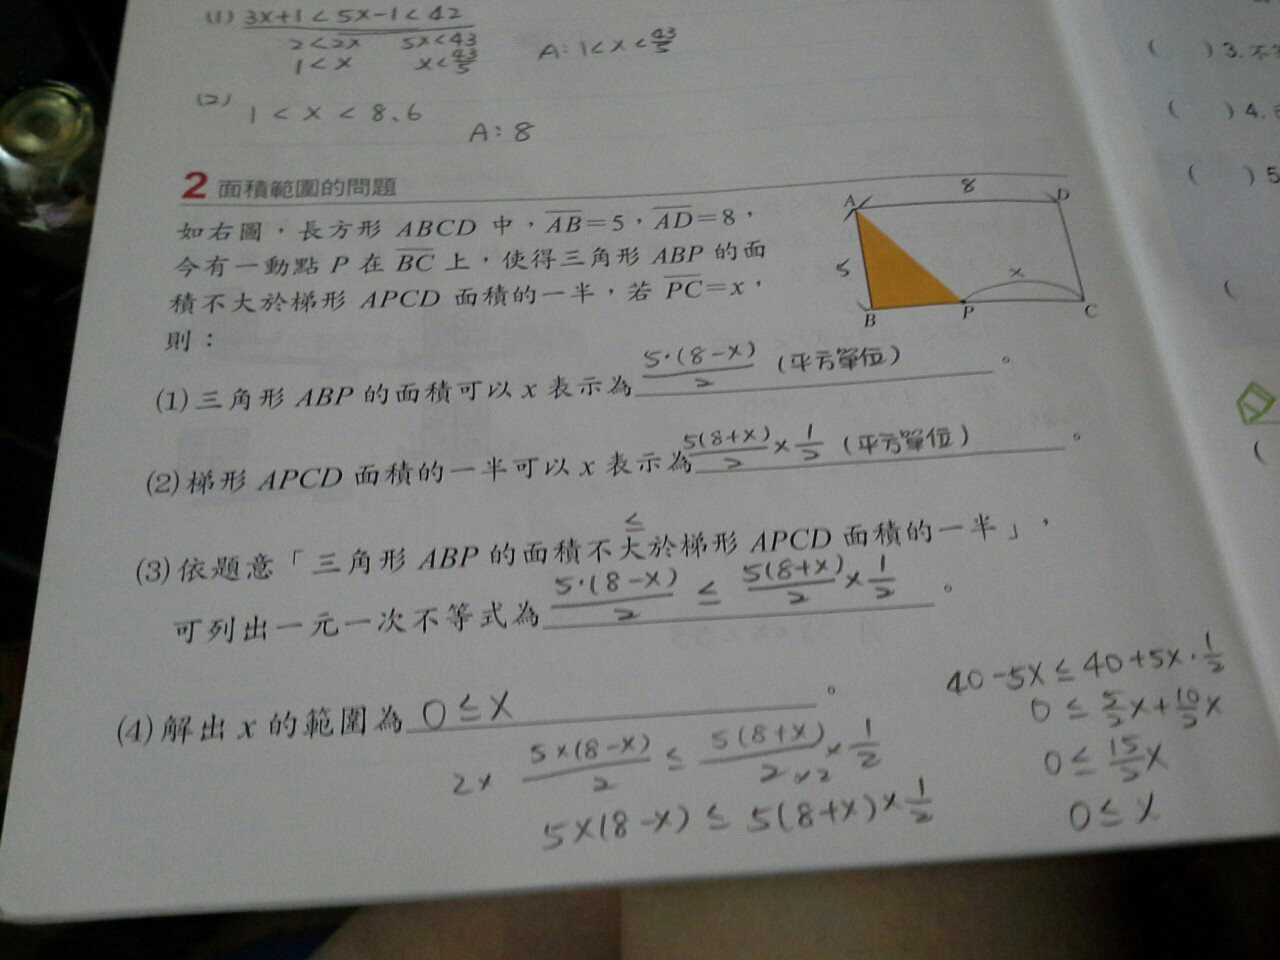 (1) 3x+1<5x-1<42
2<2x 5x<43
1<x x<43/5 A:1<x<43/5
(2) 1<x<8.6
A:8
2 面積範圍的問題
如右圖，長方形 ABCD 中，AB=5，AD=8，
今有一動點 P 在 BC 上，使得三角形 ABP 的面
積不大於梯形 APCD 面積的一半，若 PC=x，
則：
A 8 D
5 x
B P C
(1)三角形 ABP 的面積可以 x 表示為 5·(8-x)/2 (平方單位)。
(2)梯形 APCD 面積的一半可以 x 表示為 5(8+x)/2 × 1/2 (平方單位)。
≤
(3)依題意「三角形 ABP 的面積不大於梯形 APCD 面積的一半」，
可列出一元一次不等式為 5·(8-x)/2 ≤ 5(8+x)/2 × 1/2。
(4)解出 x 的範圍為 0≤x。
2× 5×(8-x)/2 ≤ 5(8+x)/2 ×2 × 1/2
5×(8-x) ≤ 5(8+x)× 1/2
40-5x≤40+5x·1/2
0≤5/2x+10/2x
0≤15/5x
0≤x
( )3.不
( )4.
( )5
(
(